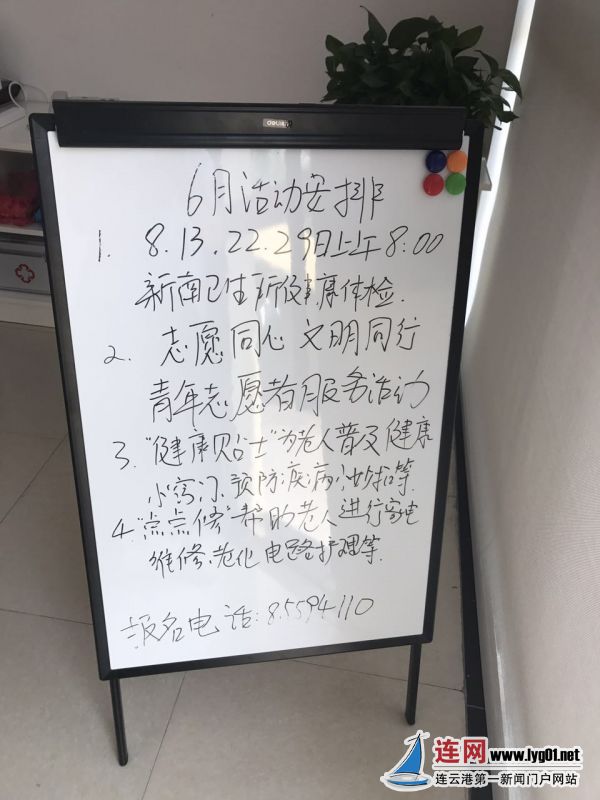 deli
6月活动安排
1. 8.13.22.29日上午8:00
新南卫生所健康体检.
2. 志愿同心 文明同行
青年志愿者服务活动
3. "健康贴士"为老人普及健康
小窍门、预防疾病小妙招等.
4. "点点修"帮助老人进行家电
维修、老化电路护理等.
报名电话:85594110
连网 www.lyg01.net
连云港第一新闻门户网站